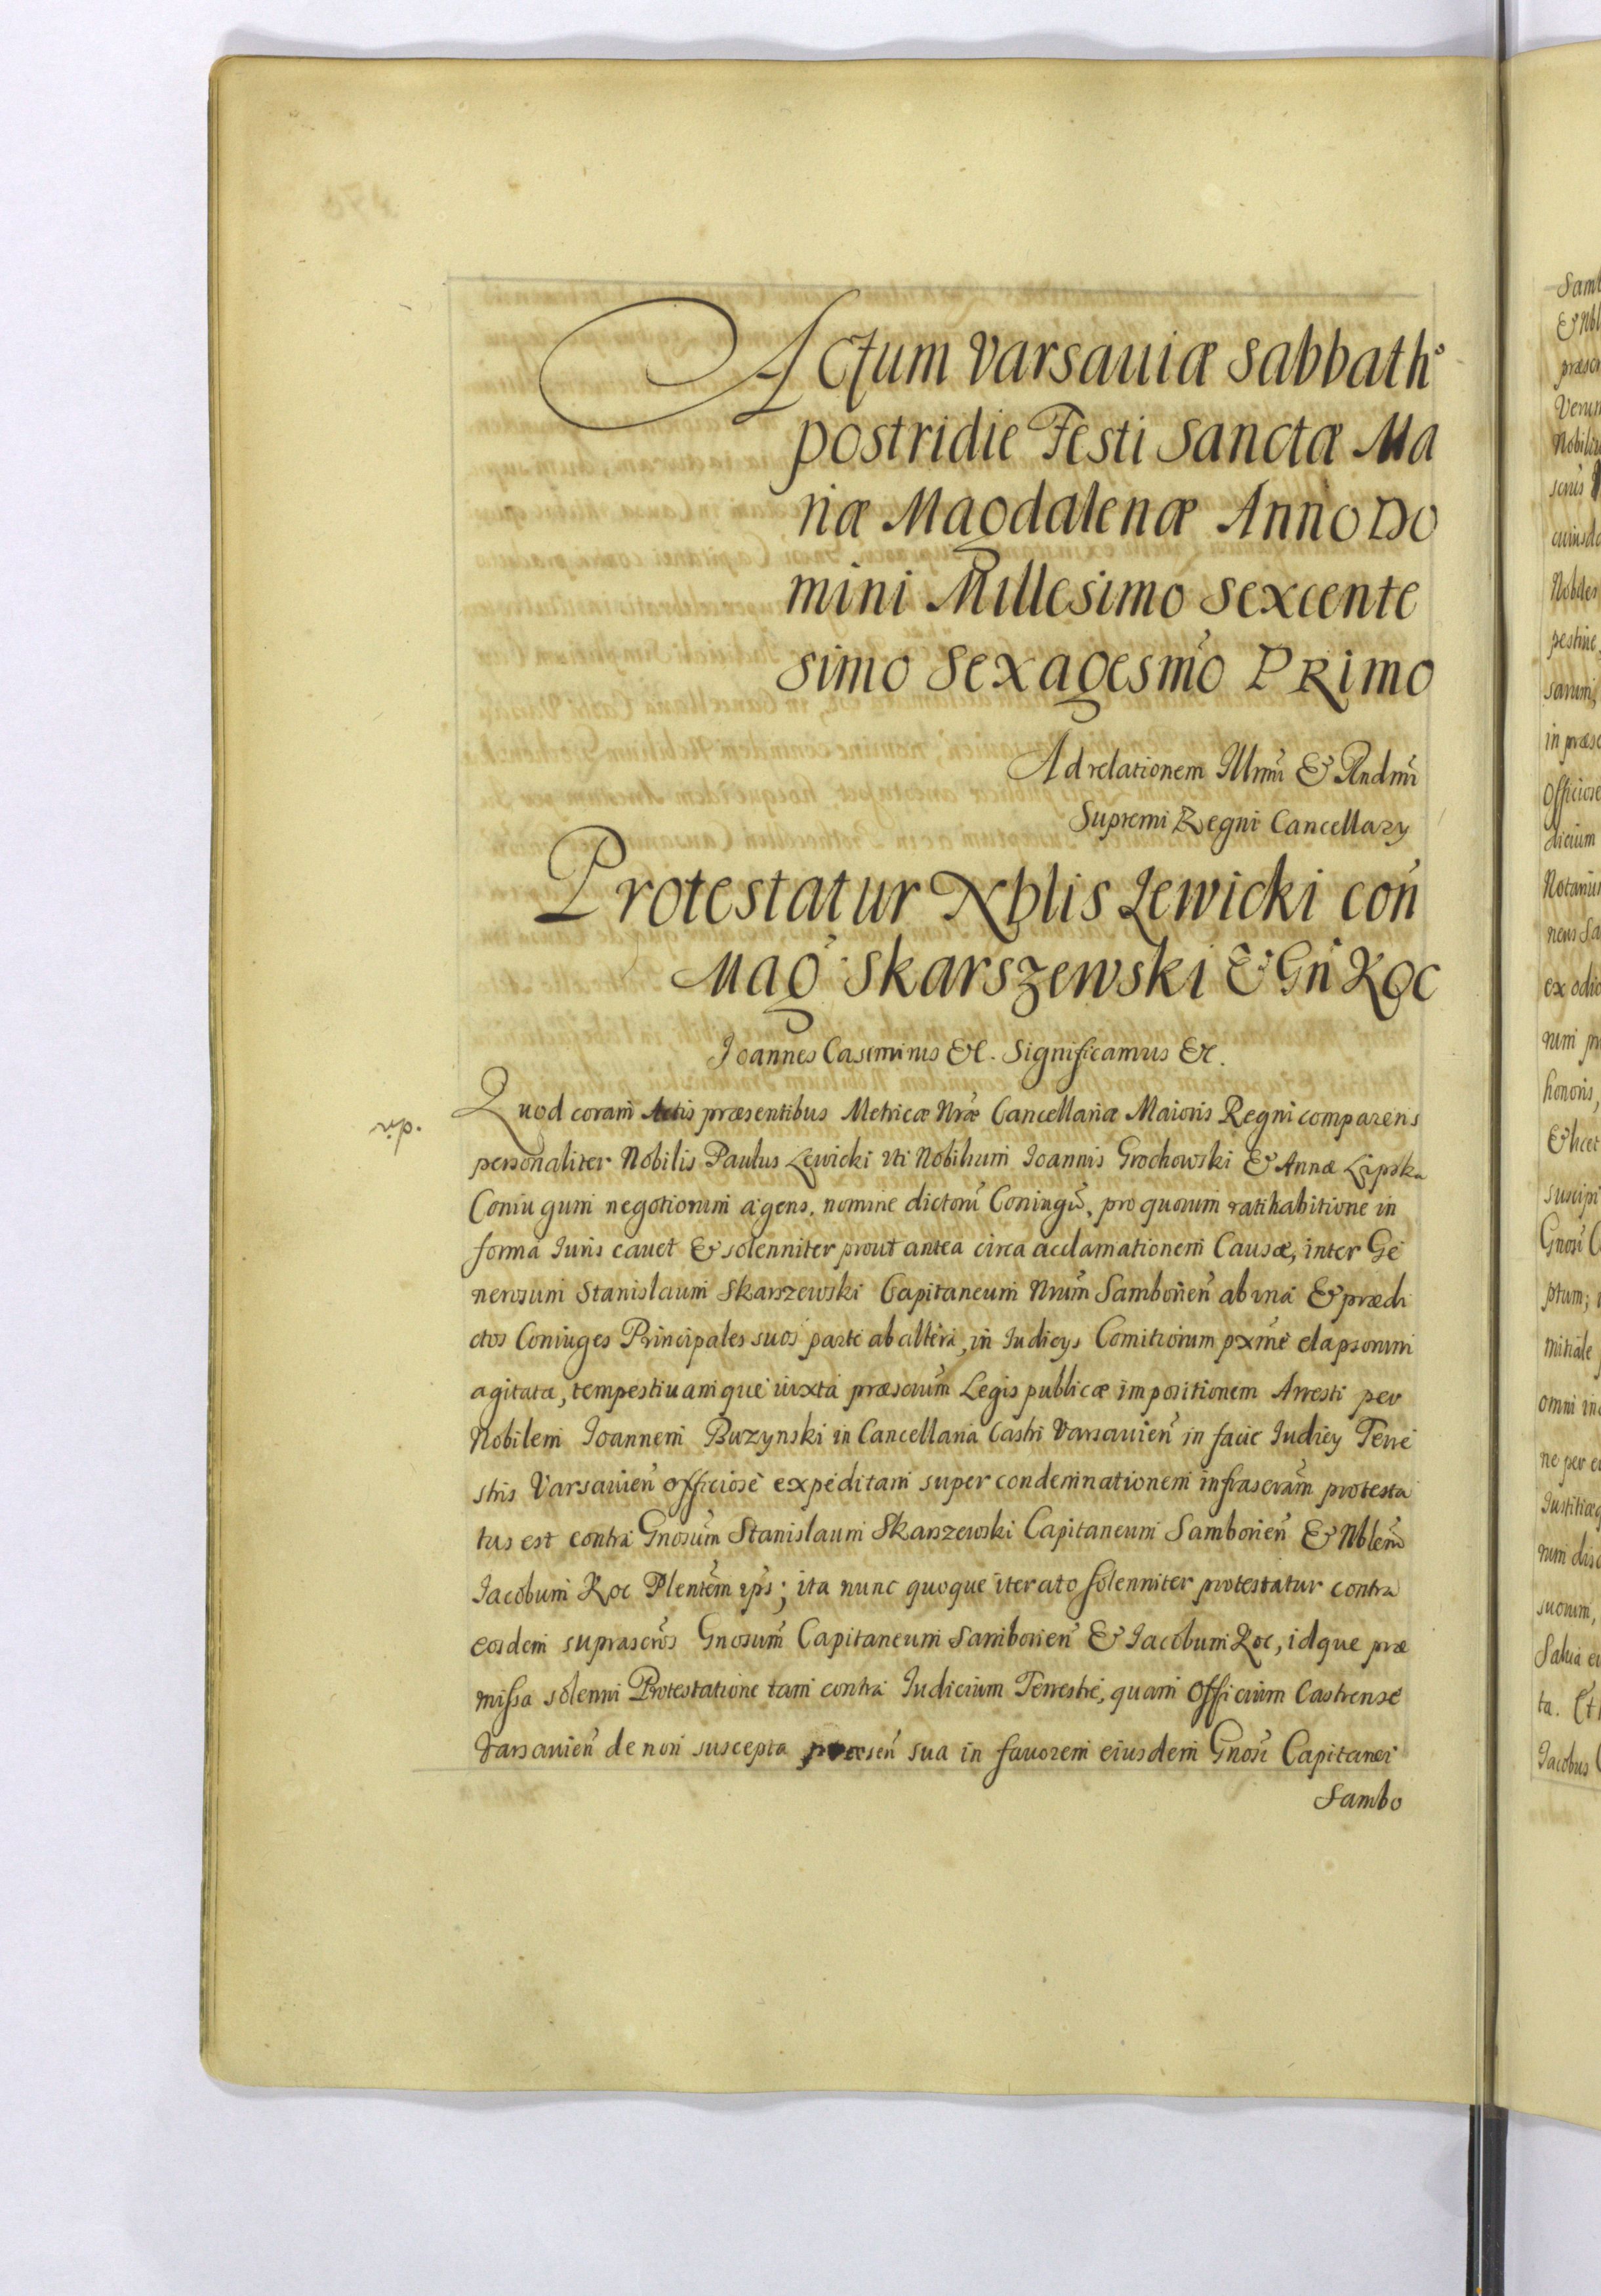 Actum Varsauiæ Sabbathº
postridie Festi Sanctæ Ma
riæ Magdalenæ Anno Do
mini Millesimo Sexcente
simo Sexagesm̃o Primo
Ad relationem Illmi & Rndmi
Supremi Regni Cancellary
Protestatur Nblis Lewicki con̄
Mag̃ Skarszewski & Gn̄ Roc
Joannes Casimirus &c. Significamus &c.
Quod coram Actis præsentibus Metricæ Nræ Cancellariæ Maioris Regni comparens
personaliter Nobilis Paulus Lewicki vti Nobilium Joannis Grochowski & Annæ Lipska
Coniugum negotiorum agens, nomine dictorũ Coniugũ, pro quorum ratihabitione in
forma Iuris cauet & solenniter prout antea circa acclamationem Causæ, inter Ge
nerosum Stanislaum Skarszewski Capitaneum Nrum̃ Samborien̄ ab vna & prædi
ctos Coniuges Principales suos parte ab altera, in Iudicys Comitiorum pxme elapsorum
agitatæ, tempestiuamque iuxta præscrum̃ Legis publicæ impositionem Arresti per
Nobilem Joannem Buzynski in Cancellaria Castri Varsauien̄ in facie Iudicy Terre
stris Varsauien̄ officiose expeditam super condemnationem infrascram̃ protesta
tus est contra Gnosum̃ Stanislaum Skarszewski Capitaneum Samborien̄ & Nblem̃
Iacobum Roc Plentem̃ ips̄; ita nunc quoque iterato solenniter protestatur contra
eosdem suprascros̃ Gnosum̃ Capitaneum Samborien̄ & Iacobum Roc, idque præ
missa solenni Protestatione tam contra Iudicium Terrestre, quam Officium Castrense
Varsauien̄ de non suscepta sua in fauorem eiusdem Gnosi Capitanei
Sambo